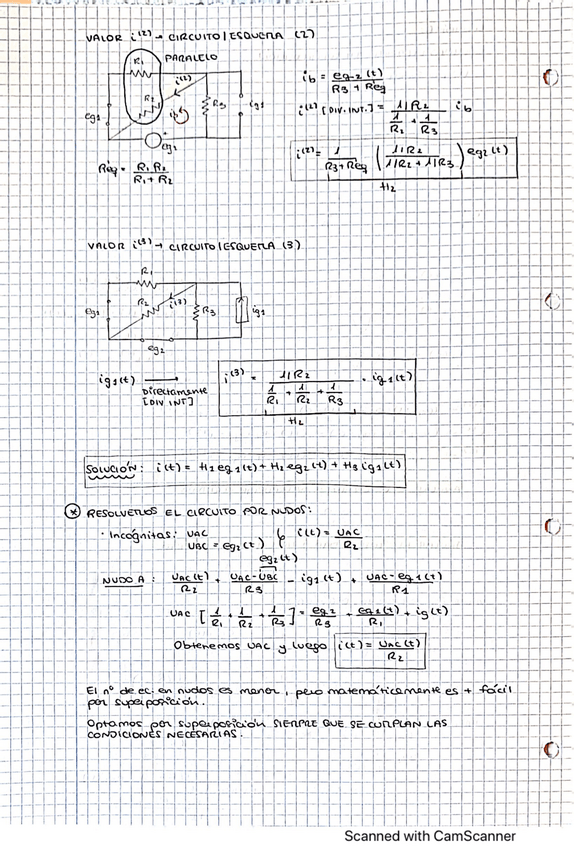 VALOR i⁽²⁾ → CIRCUITO/ESQUEMA (2)
PARALELO
R₁
i⁽²⁾
R₂
ib
R₃
eg₁
ig₁
eg₂
Req = R₁·R₂ / R₁ + R₂
ib = eg₂(t) / R₃ + Req
i⁽²⁾ [DIV. INT.] = 1/R₂ / (1/R₁ + 1/R₃) ib
i⁽²⁾ = 1 / R₃+Req ( 1/R₂ / 1/R₂ + 1/R₃ ) eg₂(t)
H₂
VALOR i⁽³⁾ → CIRCUITO/ESQUEMA (3)
R₁
R₂
i⁽³⁾
R₃
eg₁
ig₁
eg₂
ig₁(t) → Directamente [DIV INT]
i⁽³⁾ = 1/R₂ / (1/R₁ + 1/R₂ + 1/R₃) · ig₁(t)
SOLUCIÓN: i(t) = H₁ eg₁(t) + H₂ eg₂(t) + H₃ ig₁(t)
* RESOLVEMOS EL CIRCUITO POR NUDOS:
· Incógnitas: UAC
UBC = eg₂(t)
i(t) = UAC / R₂
eg₂(t)
NUDO A: UAC(t) / R₂ + UAC-UBC / R₃ - ig₁(t) + UAC-eg₁(t) / R₁
UAC [ 1/R₁ + 1/R₂ + 1/R₃ ] = eg₂ / R₃ + eg₁(t) / R₁ + ig(t)
Obtenemos UAC y luego i(t) = UAC(t) / R₂
El nº de ec. en nudos es menor, pero matemáticamente es + fácil
por superposición.
Optamos por superposición SIEMPRE QUE SE CUMPLAN LAS
CONDICIONES NECESARIAS.
Scanned with CamScanner